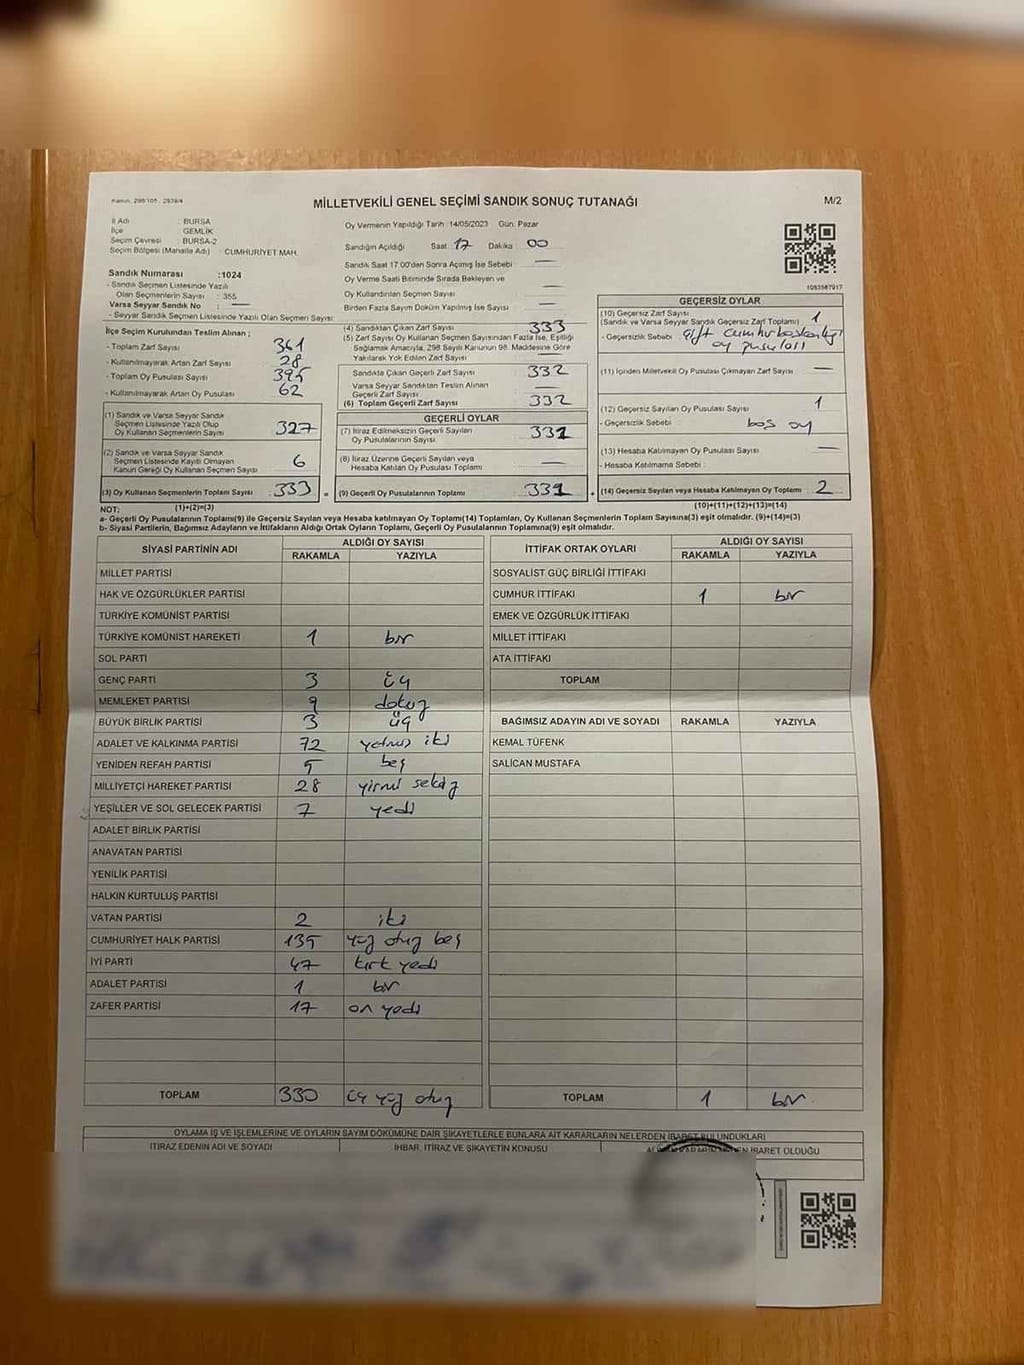 Kanun, 298/105 , 2839/4
MİLLETVEKİLİ GENEL SEÇİMİ SANDIK SONUÇ TUTANAĞI
M/2
İl Adı : BURSA
İlçe : GEMLİK
Seçim Çevresi : BURSA-2
Seçim Bölgesi (Mahalle Adı) : CUMHURİYET MAH.
Sandık Numarası :1024
- Sandık Seçmen Listesinde Yazılı
Olan Seçmenlerin Sayısı : 355
Varsa Seyyar Sandık No : —
- Seyyar Sandık Seçmen Listesinde Yazılı Olan Seçmen Sayısı:
Oy Vermenin Yapıldığı Tarih : 14/05/2023 Gün: Pazar
Sandığın Açıldığı Saat: 17 Dakika 00
Sandık Saat 17:00'den Sonra Açılmış İse Sebebi —
Oy Verme Saati Bitiminde Sırada Bekleyen ve
Oy Kullandırılan Seçmen Sayısı —
Birden Fazla Sayım Döküm Yapılmış İse Sayısı —
1093587917
İlçe Seçim Kurulundan Teslim Alınan ;
- Toplam Zarf Sayısı 361
- Kullanılmayarak Artan Zarf Sayısı 28
- Toplam Oy Pusulası Sayısı 395
- Kullanılmayarak Artan Oy Pusulası 62
(1) Sandık ve Varsa Seyyar Sandık
Seçmen Listesinde Yazılı Olup
Oy Kullanan Seçmenlerin Sayısı 327
(2) Sandık ve Varsa Seyyar Sandık
Seçmen Listesinde Kayıtlı Olmayan
Kanun Gereği Oy Kullanan Seçmen Sayısı 6
(3) Oy Kullanan Seçmenlerin Toplam Sayısı 333 =
(4) Sandıktan Çıkan Zarf Sayısı 333
(5) Zarf Sayısı Oy Kullanan Seçmen Sayısından Fazla İse, Eşitliği
Sağlamak Amacıyla, 298 Sayılı Kanunun 98. Maddesine Göre
Yakılarak Yok Edilen Zarf Sayısı —
Sandıkta Çıkan Geçerli Zarf Sayısı 332
Varsa Seyyar Sandıktan Teslim Alınan
Geçerli Zarf Sayısı —
(6) Toplam Geçerli Zarf Sayısı 332
GEÇERLİ OYLAR
(7) İtiraz Edilmeksizin Geçerli Sayılan
Oy Pusulalarının Sayısı 331
(8) İtiraz Üzerine Geçerli Sayılan veya
Hesaba Katılan Oy Pusulası Toplamı —
(9) Geçerli Oy Pusulalarının Toplamı 331 +
GEÇERSİZ OYLAR
(10) Geçersiz Zarf Sayısı
(Sandık ve Varsa Seyyar Sandık Geçersiz Zarf Toplamı) 1
- Geçersizlik Sebebi çift cumhurbaşkanlığı
oy pusulası
(11) İçinden Milletvekili Oy Pusulası Çıkmayan Zarf Sayısı —
(12) Geçersiz Sayılan Oy Pusulası Sayısı 1
- Geçersizlik Sebebi boş oy
(13) Hesaba Katılmayan Oy Pusulası Sayısı —
- Hesaba Katılmama Sebebi :
(14) Geçersiz Sayılan veya Hesaba Katılmayan Oy Toplamı 2
NOT: (1)+(2)=(3)
(10)+(11)+(12)+(13)=(14)
a- Geçerli Oy Pusulalarının Toplamı(9) ile Geçersiz Sayılan veya Hesaba katılmayan Oy Toplamı(14) Toplamları, Oy Kullanan Seçmenlerin Toplam Sayısına(3) eşit olmalıdır. (9)+(14)=(3)
b- Siyasi Partilerin, Bağımsız Adayların ve İttifakların Aldığı Ortak Oyların Toplamı, Geçerli Oy Pusulalarının Toplamına(9) eşit olmalıdır.
SİYASİ PARTİNİN ADI ALDIĞI OY SAYISI
RAKAMLA YAZIYLA
MİLLET PARTİSİ
HAK VE ÖZGÜRLÜKLER PARTİSİ
TÜRKİYE KOMÜNİST PARTİSİ
TÜRKİYE KOMÜNİST HAREKETİ 1 bir
SOL PARTİ
GENÇ PARTİ 3 üç
MEMLEKET PARTİSİ 9 dokuz
BÜYÜK BİRLİK PARTİSİ 3 üç
ADALET VE KALKINMA PARTİSİ 72 yetmiş iki
YENİDEN REFAH PARTİSİ 5 beş
MİLLİYETÇİ HAREKET PARTİSİ 28 yirmi sekiz
YEŞİLLER VE SOL GELECEK PARTİSİ 7 yedi
ADALET BİRLİK PARTİSİ
ANAVATAN PARTİSİ
YENİLİK PARTİSİ
HALKIN KURTULUŞ PARTİSİ
VATAN PARTİSİ 2 iki
CUMHURİYET HALK PARTİSİ 135 yüz otuz beş
İYİ PARTİ 47 kırk yedi
ADALET PARTİSİ 1 bir
ZAFER PARTİSİ 17 on yedi
TOPLAM 330 üç yüz otuz
İTTİFAK ORTAK OYLARI ALDIĞI OY SAYISI
RAKAMLA YAZIYLA
SOSYALİST GÜÇ BİRLİĞİ İTTİFAKI
CUMHUR İTTİFAKI 1 bir
EMEK VE ÖZGÜRLÜK İTTİFAKI
MİLLET İTTİFAKI
ATA İTTİFAKI
TOPLAM
BAĞIMSIZ ADAYIN ADI VE SOYADI RAKAMLA YAZIYLA
KEMAL TÜFENK
SALİCAN MUSTAFA
TOPLAM 1 bir
OYLAMA İŞ VE İŞLEMLERİNE VE OYLARIN SAYIM DÖKÜMÜNE DAİR ŞİKAYETLERLE BUNLARA AİT KARARLARIN NELERDEN İBARET BULUNDUKLARI
İTİRAZ EDENİN ADI VE SOYADI İHBAR, İTİRAZ VE ŞİKAYETİN KONUSU ALINAN KARARIN NEDEN İBARET OLDUĞU